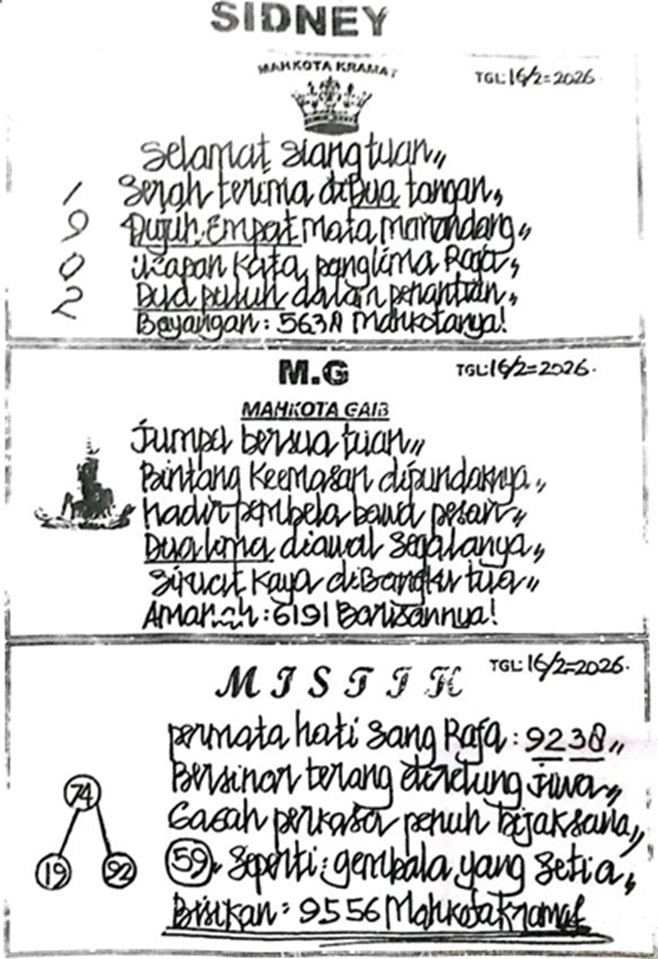 SIDNEY
MAHKOTA KRAMAT
TGL: 16/2=2026
Selamat siang tuan,,
1
Serah terima diDua tangan,,
9
Dujuh Empat mata memandang,,
0
Ucapan kata panglima Raja,,
2
Dua puluh dalam penantian,,
Bayangan: 5638 Mahkotanya!
M.G
TGL: 16/2=2026.
MAHKOTA GAIB
Jumpa bersua tuan,,
Bintang Keemasan dipundaknya,,
hadir pembela bawa pesan,,
Dua lima diawal segalanya,,
Sirucit kaya diBangku tua,,
Amanah: 6191 Barisannya!
MISTIK
TGL: 16/2=2026.
permata hati Sang Raja: 9238,,
Bersinar terang direlung jiwa,,
74
Gagah perkasa penuh Bijaksana,,
19 92
59, Seperti: gembala yang setia,,
Bisikan: 9556 Mahkota Kramat